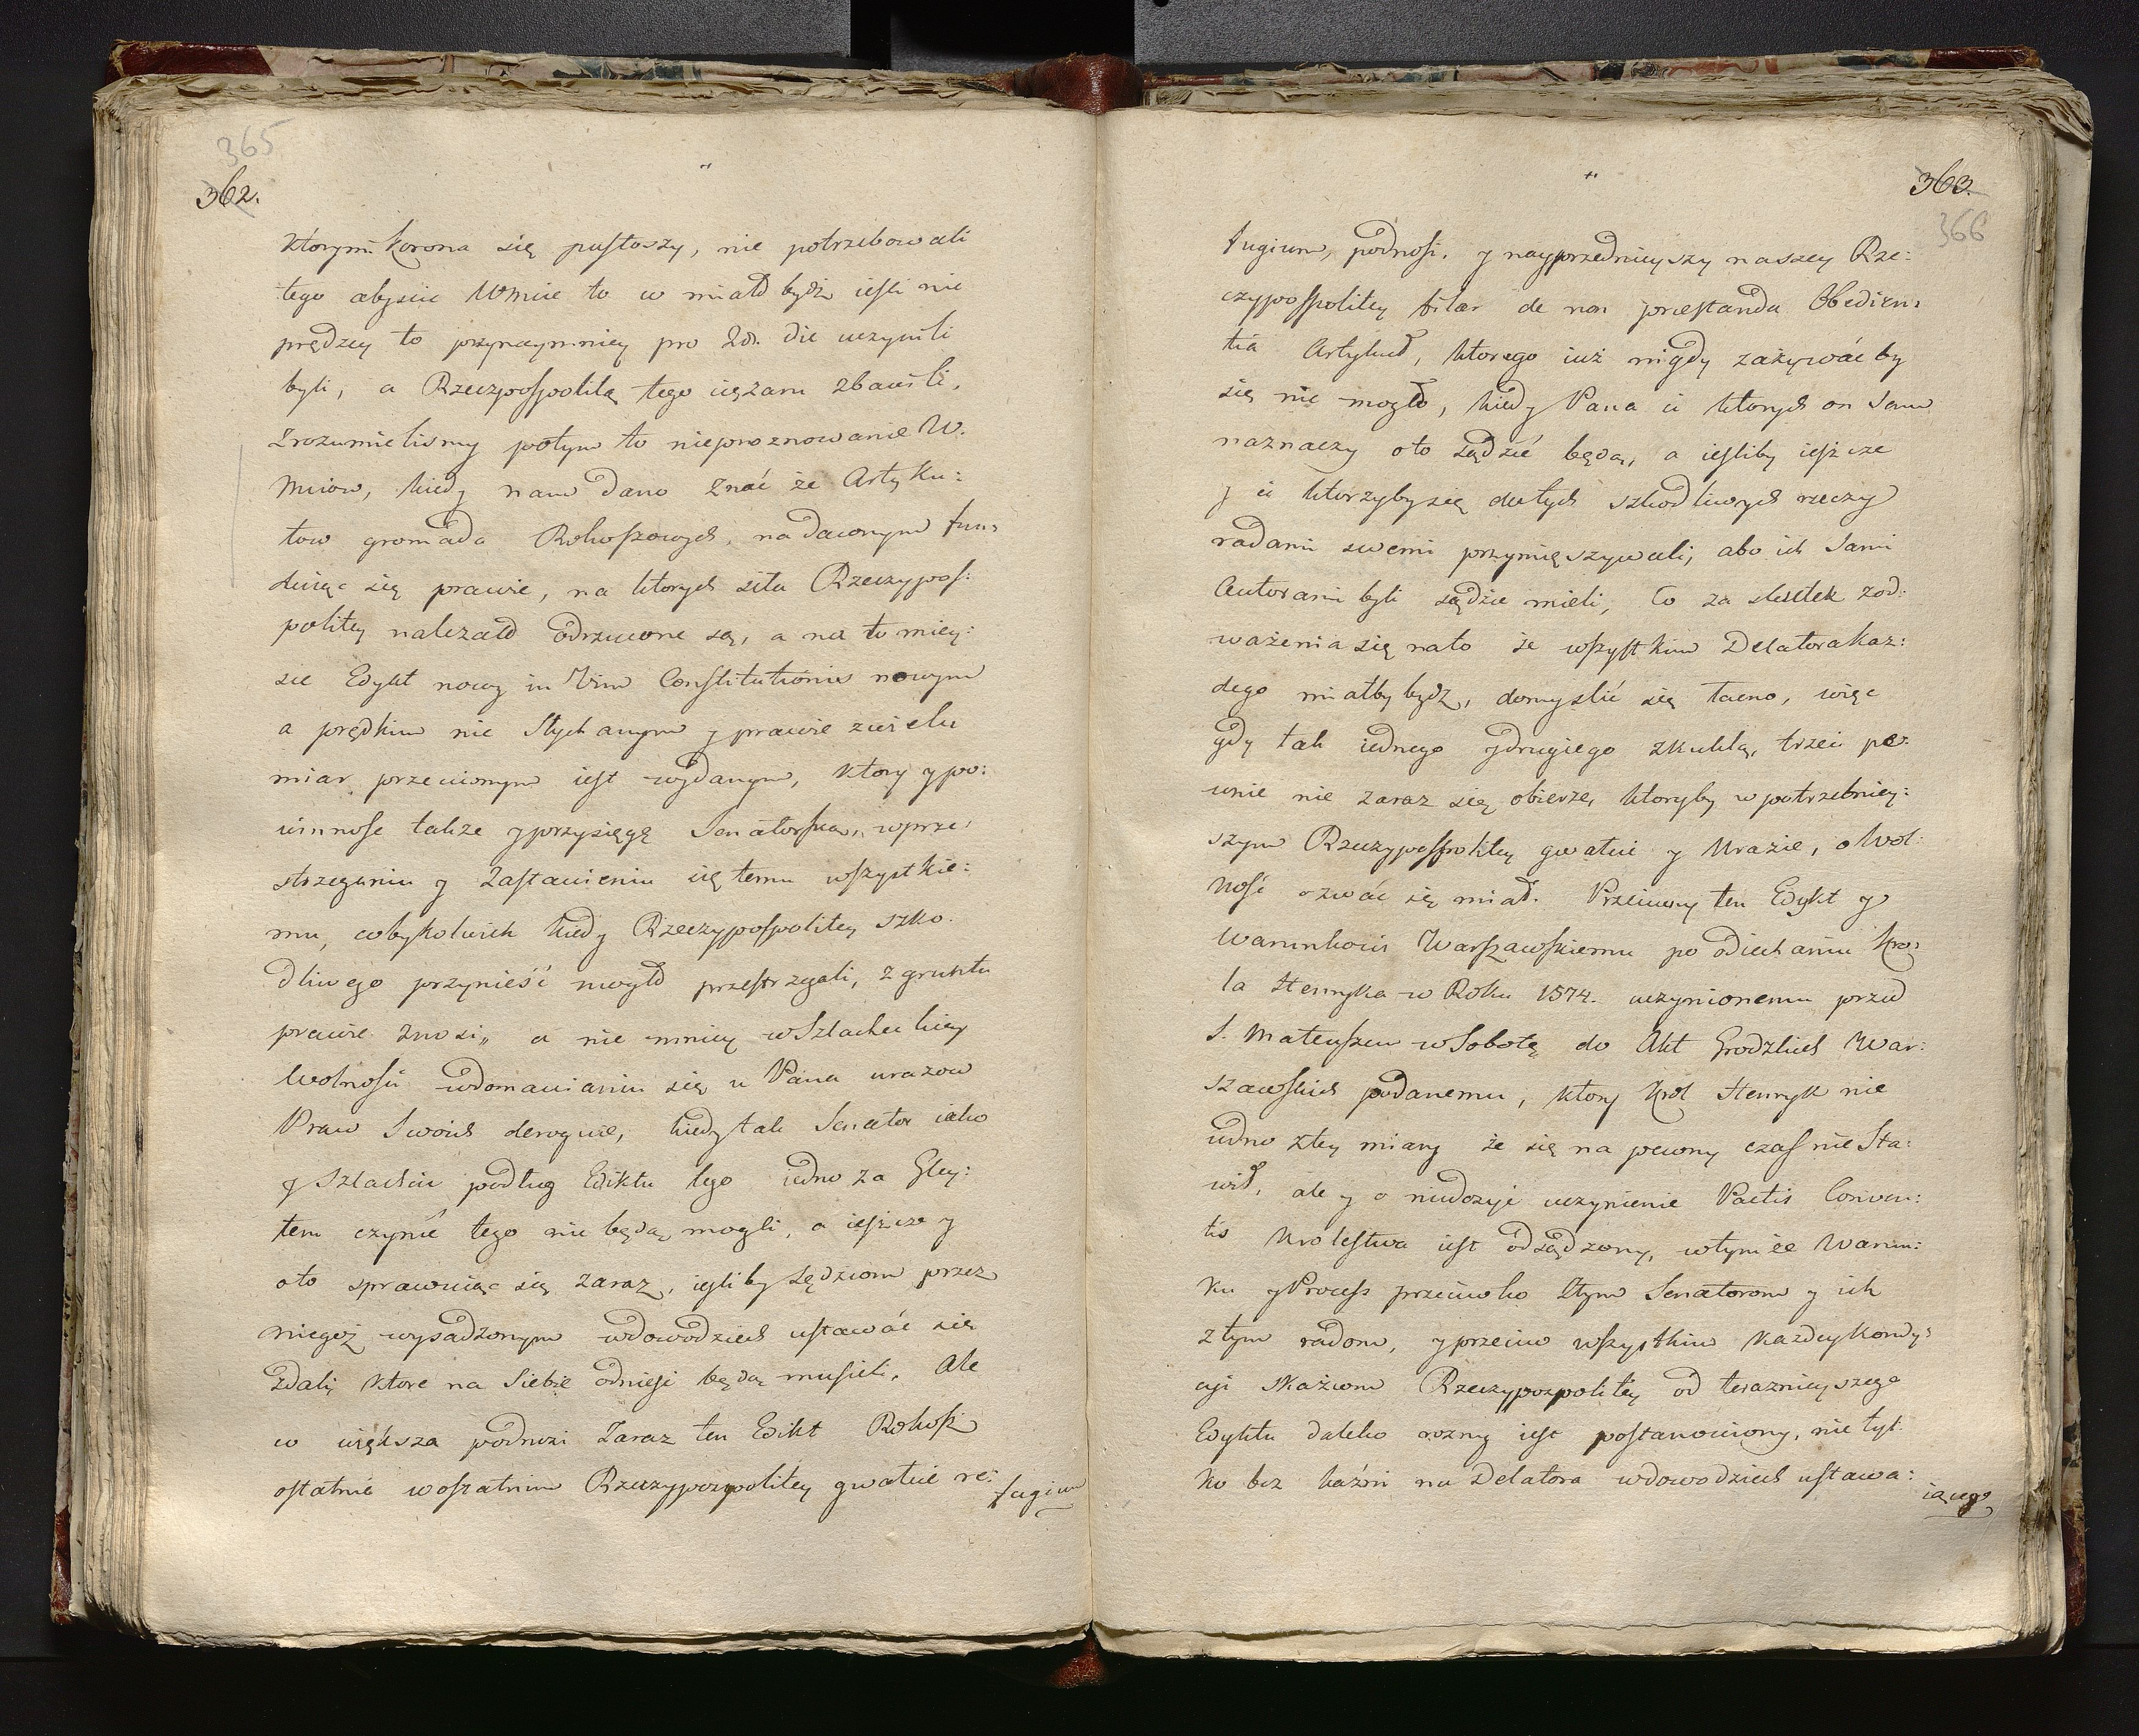 365
362.
Ktorymi Korona się pustoszy, nie potrzebowali
tego abyscie Wmcie to w miałd bydź iesli nie
prędzey to przynaymniey pro 20. die uczynili
byli, a Rzeczpospolitą tego ciężaru zbawili.
Zrozumielismy potym to nieproznowanie W.
Mciow, kiedy nam dano znać że Artyku:
łow gromada Rokoszowych, nadawnym fun:
duiąc się prawie, na ktorych siła Rzeczypos:
politey nalezało odrzucone są, a na to miey:
sce Edykt nowy in Vim Constitutionis nowym
a prędkim nie słychanym y prawie zwielu
miar przeciwnym iest wydanym, ktory y po:
winnosc takze y przysięgę Senatorską, w prze:
strzeganiu y Zastawieniu się temu wszystkie:
mu, cobykolwiek kiedy Rzeczypospolitey szko:
dliwego przynieść mogło przestrzegali, z gruntu
prawie znosi„ a nie mniey w Szlacheckiey
Wolnosci wdomawianiu się u Pana urazow
Praw Swoich deroguie, kiedy tak Senator iako
y Szlachcic podług Ediktu tego iedno za Gley:
tem czynić tego nie będą mogli, a iescze y
oto sprawuiąc się zaraz, iesliby sędziom przez
niegoż wysadzonym wdowodziech ustawać się
zdali ktore na Siebie odniesc będą musieli. Ale
w większa podnosi Zaraz ten Edikt Rokosz
ostatnie wostatnim Rzeczypospolitey gwałcie re:
fugium
363.
366
fugium, podnosi, y nayprzednieyszy naszey Rze:
czypospolitey filar de non præstanda Obedien:
tia Artykuł, ktorego iuż nigdy zażywać by
się nie mogło, kiedy Pana ci ktorych on Sam
naznaczy oto sądzić będą, a iesliby iescze
y ci ktorzyby się do tych szkodliwych rzeczy
radami swemi przymięszywali, abo ich Sami
Autorami byli sądzic mieli, Co za skutek zod:
ważenia się nato że wszystkim Delatora kaz:
dego miałby bydz, domyslić się łacno, więc
gdy tak iednego ydrugiego zkukłą, trzeci pe:
wnie nie zaraz się obierze, ktoryby w potrzebniey:
szym Rzeczypospolitey gwałcie y Urazie, o Wol:
ność ozwać się miał. Przeciwny ten Edykt y
Warunkowi Warszawskiemu po odiechaniu Kro:
la Henryka w Roku 1574. uczynionemu przed
S. Mateuszem w Sobotę do Akt Grodzkich War:
szawskich podanemu, ktory Krol Henryk nie
iedno ztey miary że się na pewny czas nie Sta:
wił, ale y o niedosyc uczynienie Pactis Conven:
tis Krolestwa iest odsądzony, wtymże Warun:
ku y Process przeciwko Złym Senatorom y ich
złym radom, yprzeciw wszystkim każdey Kondy:
cyi skażcom Rzeczypospolitey od terazniejszego
Edyktu daleko rozny iest postanowiony, nie tyl:
ko bez kaźni na Delatora wdowodziech ustawa:
iącego